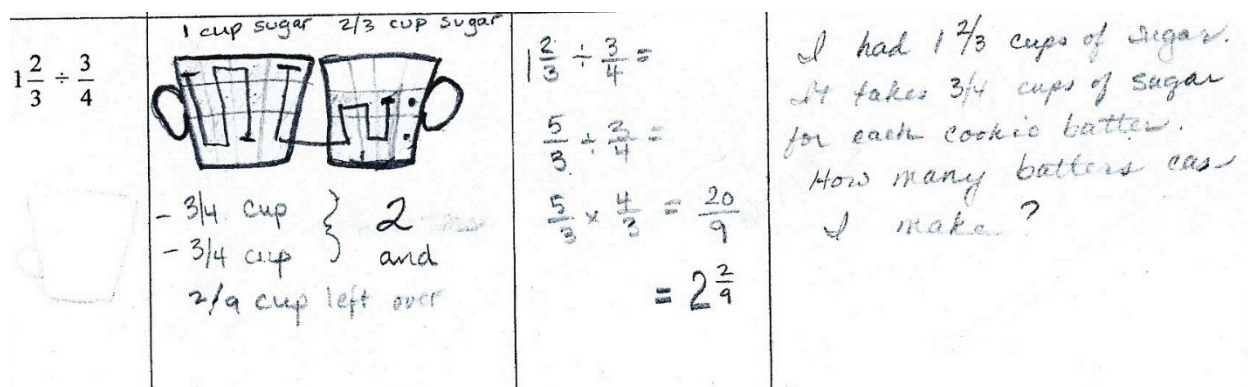 1 2/3 ÷ 3/4
1 cup sugar 2/3 cup sugar
- 3/4 cup } 2
- 3/4 cup and
2/9 cup left over
1 2/3 ÷ 3/4 =
5/3 ÷ 3/4 =
5/3 × 4/3 = 20/9
= 2 2/9
I had 1 2/3 cups of sugar.
It takes 3/4 cups of sugar
for each cookie batter.
How many batters can
I make?